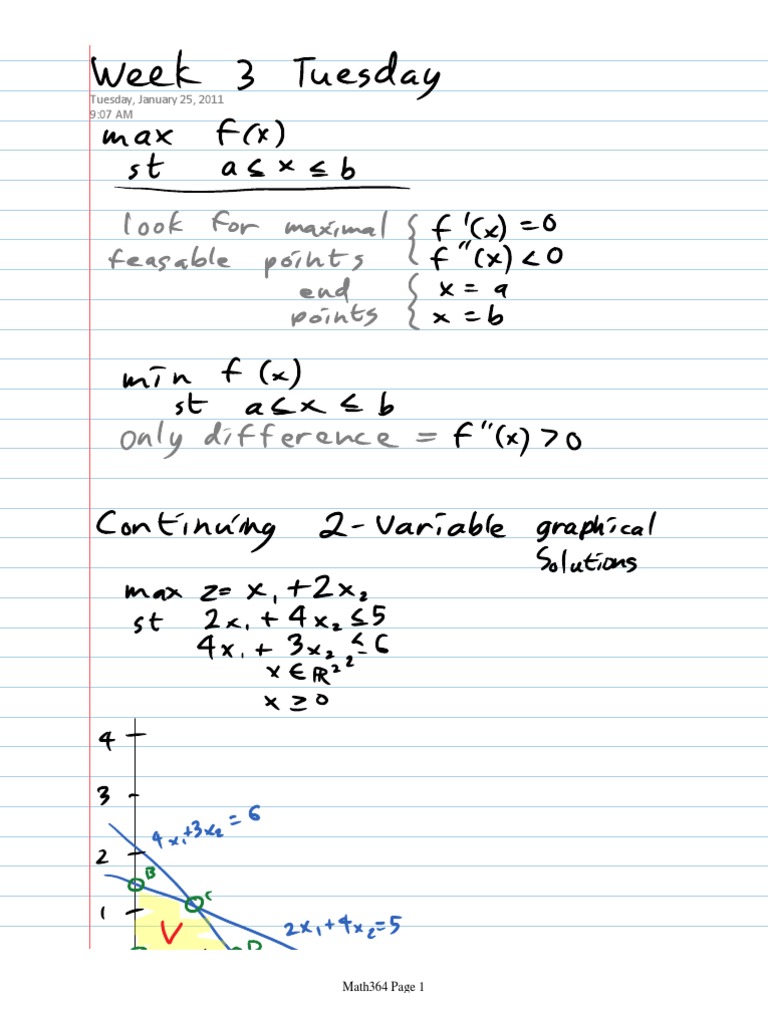 Week 3 Tuesday
Tuesday, January 25, 2011
9:07 AM
max f(x)
st a ≤ x ≤ b
look for maximal { f'(x) = 0
feasable points { f''(x) < 0
end { x = a
points { x = b
min f(x)
st a ≤ x ≤ b
only difference = f''(x) > 0
Continuing 2-Variable graphical
Solutions
max z = x₁ + 2x₂
st 2x₁ + 4x₂ ≤ 5
4x₁ + 3x₂ ≤ 6
x ∈ ℝ²
x ≥ 0
4
3
4x₁+3x₂ = 6
2
B
C
1
V
2x₁+4x₂=5
D
Math364 Page 1